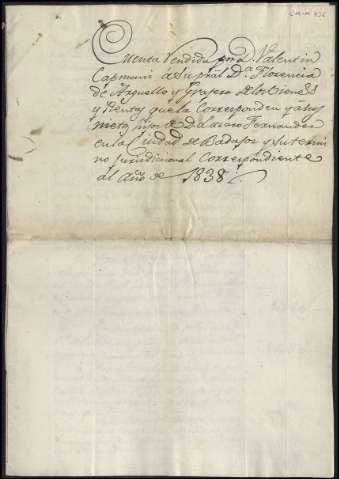 Cuenta Rendida por D. Valentin
Capmani a Su pral. D.ª Florencia
de Arguello y Grajera de los Vienes
y Rentas que la Corresponden y a los
nietos hijos de D. Lazaro Fernandez
en la Ciudad de Badajoz y Su termi
no jurisdicional Correspondiente
al año de 1838